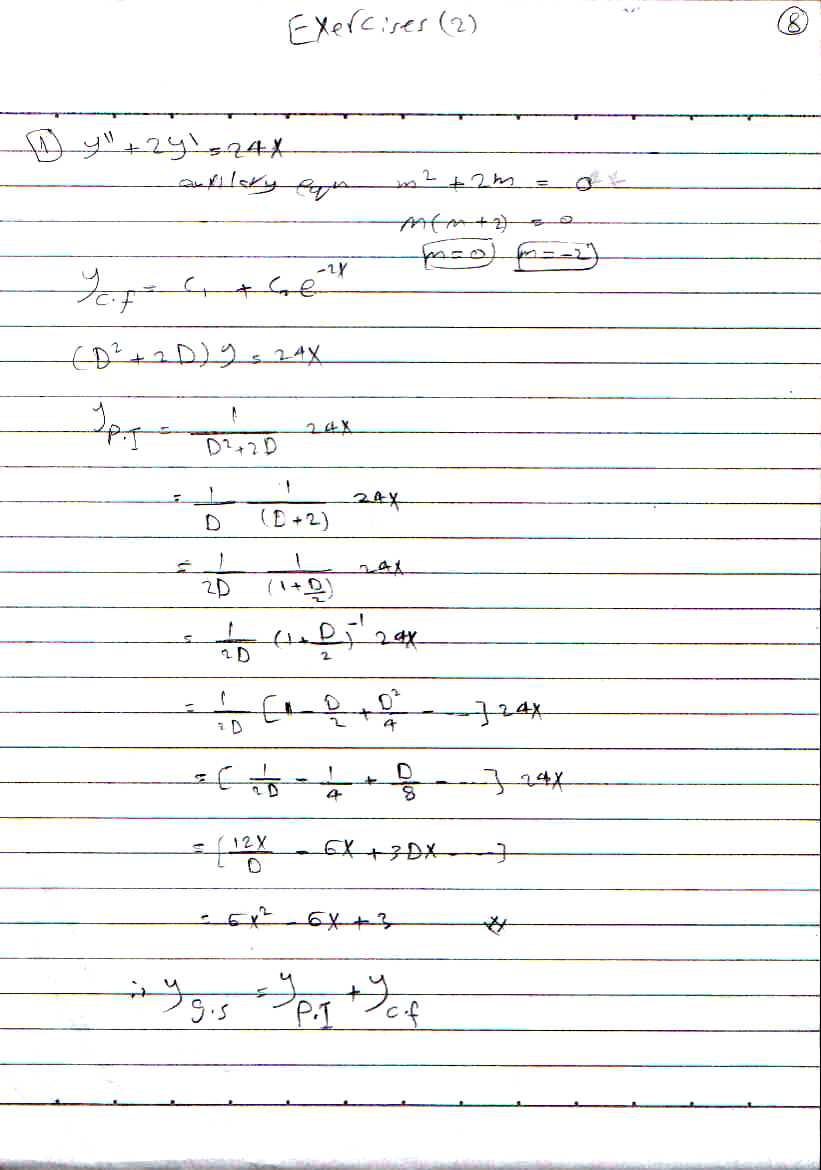 Exercises (2) ⑧
① y'' + 2y' = 24x
auxilary eqn m² + 2m = 0
m(m+2) = 0
m=0 m=-2
y_{c.f} = c₁ + c₂ e^{-2x}
(D² + 2D) y = 24x
y_{P.I} = \frac{1}{D²+2D} 24x
= \frac{1}{D} \frac{1}{(D+2)} 24x
= \frac{1}{2D} \frac{1}{(1+\frac{D}{2})} 24x
= \frac{1}{2D} (1+\frac{D}{2})^{-1} 24x
= \frac{1}{2D} [1 - \frac{D}{2} + \frac{D²}{4} - ---] 24x
= [\frac{1}{2D} - \frac{1}{4} + \frac{D}{8} - ---] 24x
= [\frac{12x}{D} - 6x + 3Dx ---]
= 6x² - 6x + 3
∴ y_{g.s} = y_{P.I} + y_{c.f}